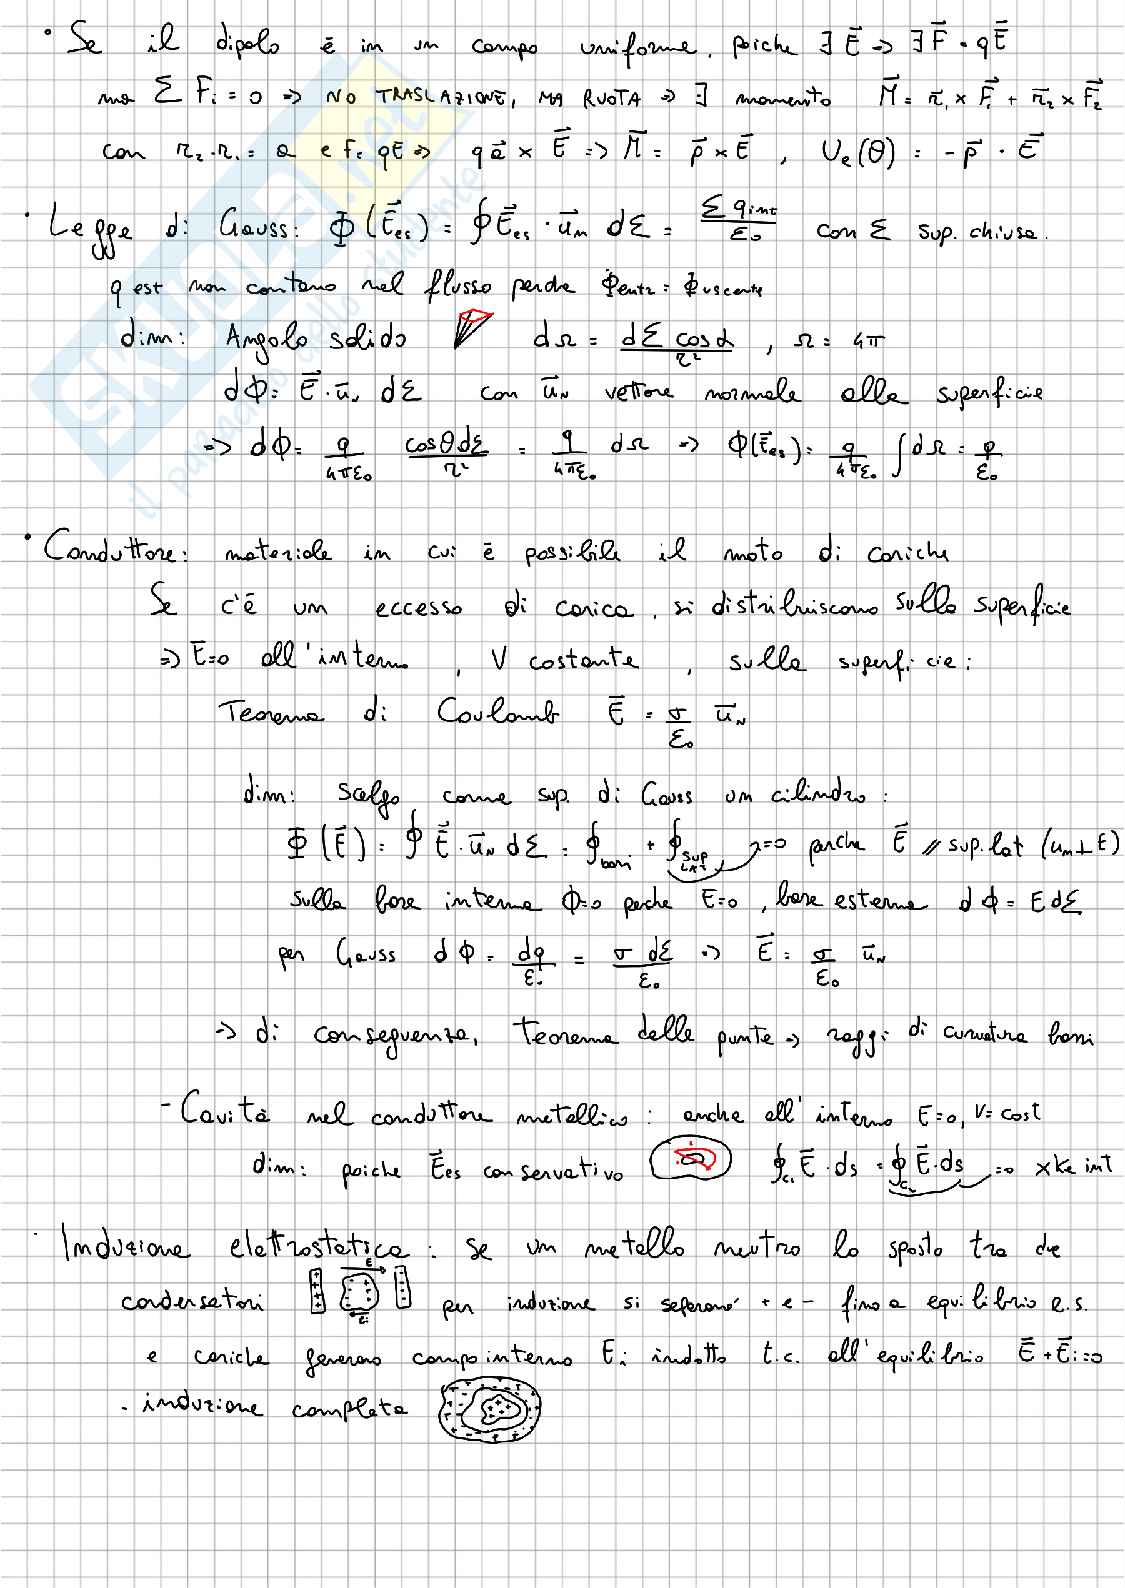 • Se il dipolo è in un campo uniforme, poiche ∃ E⃗ => ∃ F⃗ = qE⃗
ma Σ Fi = 0 => NO TRASLAZIONE, MA RUOTA => ∃ momento M⃗ = r⃗₁ × F⃗₁ + r⃗₂ × F⃗₂
con r₂ - r₁ = a e F= qE => qa⃗ × E⃗ => M⃗ = p⃗ × E⃗ , Ue(θ) = -p⃗ · E⃗
• Legge di Gauss: Φ(E⃗es) = ∮ E⃗es · u⃗n dΣ = Σ qint / ε₀ con Σ sup. chiusa.
q est non contano nel flusso perche Φentr = Φuscente
dim: Angolo solido dΩ = dΣ cosα / r² , Ω = 4π
dΦ = E⃗ · u⃗N dΣ con u⃗N vettore normale alla superficie
=> dΦ = q/4πε₀ cosθdΣ/r² = q/4πε₀ dΩ => Φ(E⃗es) = q/4πε₀ ∫ dΩ = q/ε₀
• Conduttore: materiale in cui è possibile il moto di cariche
Se c'è un eccesso di carica, si distribuiscono sulla superficie
=> E⃗=0 all'interno , V costante , sulla superficie:
Teorema di Coulomb E⃗ = σ/ε₀ u⃗N
dim: scelgo come sup. di Gauss un cilindro:
Φ(E⃗) = ∮ E⃗ · u⃗N dΣ = ∮basi + ∮SUP LAT → =0 perche E⃗ // sup. lat (un⊥E)
sulla base interna Φ=0 perche E=0, base esterna dΦ = EdΣ
per Gauss dΦ = dq/ε₀ = σ dΣ/ε₀ => E⃗ = σ/ε₀ u⃗N
=> di conseguenza, teorema delle punte => raggi di curvatura bassi
- Cavità nel conduttore metallico: anche all'interno E=0, V=cost
dim: poiche E⃗es conservativo ∮c₁ E⃗ · ds = ∮c₂ E⃗ · ds → =0 xke int
· Induzione elettrostatica: se un metallo neutro lo sposto tra due
condensatori E Ei per induzione si separano + e - fino a equilibrio e.s.
e cariche generano campo interno Ei indotto t.c. all'equilibrio E⃗ + E⃗i = 0
- induzione completa
SKUOLA.net
il paradiso dello studente